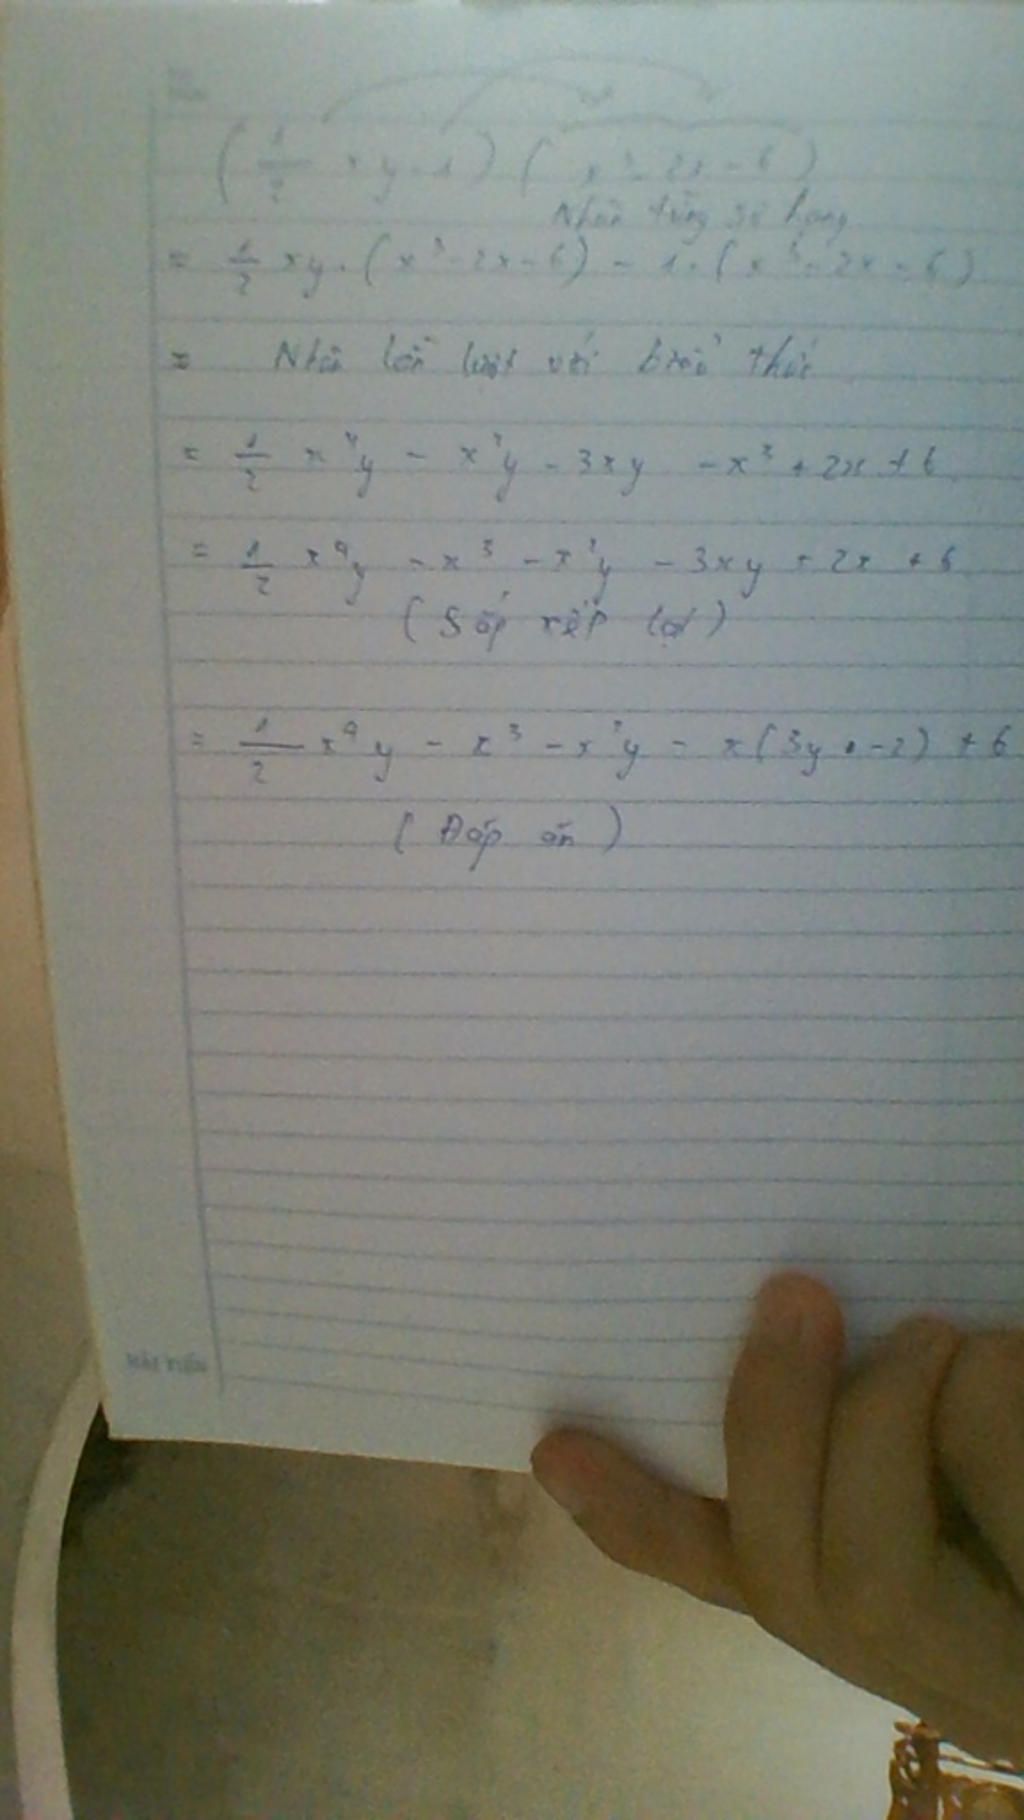 (1/2 xy - 1) (x³ - 2x - 6)
Nhân từng số hạng
= 1/2 xy . (x³ - 2x - 6) - 1 . (x³ - 2x - 6)
= Nhân lần lượt với biểu thức
= 1/2 x⁴y - x²y - 3xy - x³ + 2x + 6
= 1/2 x⁴y - x³ - x²y - 3xy + 2x + 6
(Sắp xếp lại)
= 1/2 x⁴y - x³ - x²y - x(3y - 2) + 6
(Đáp án)
HẢI TIẾN